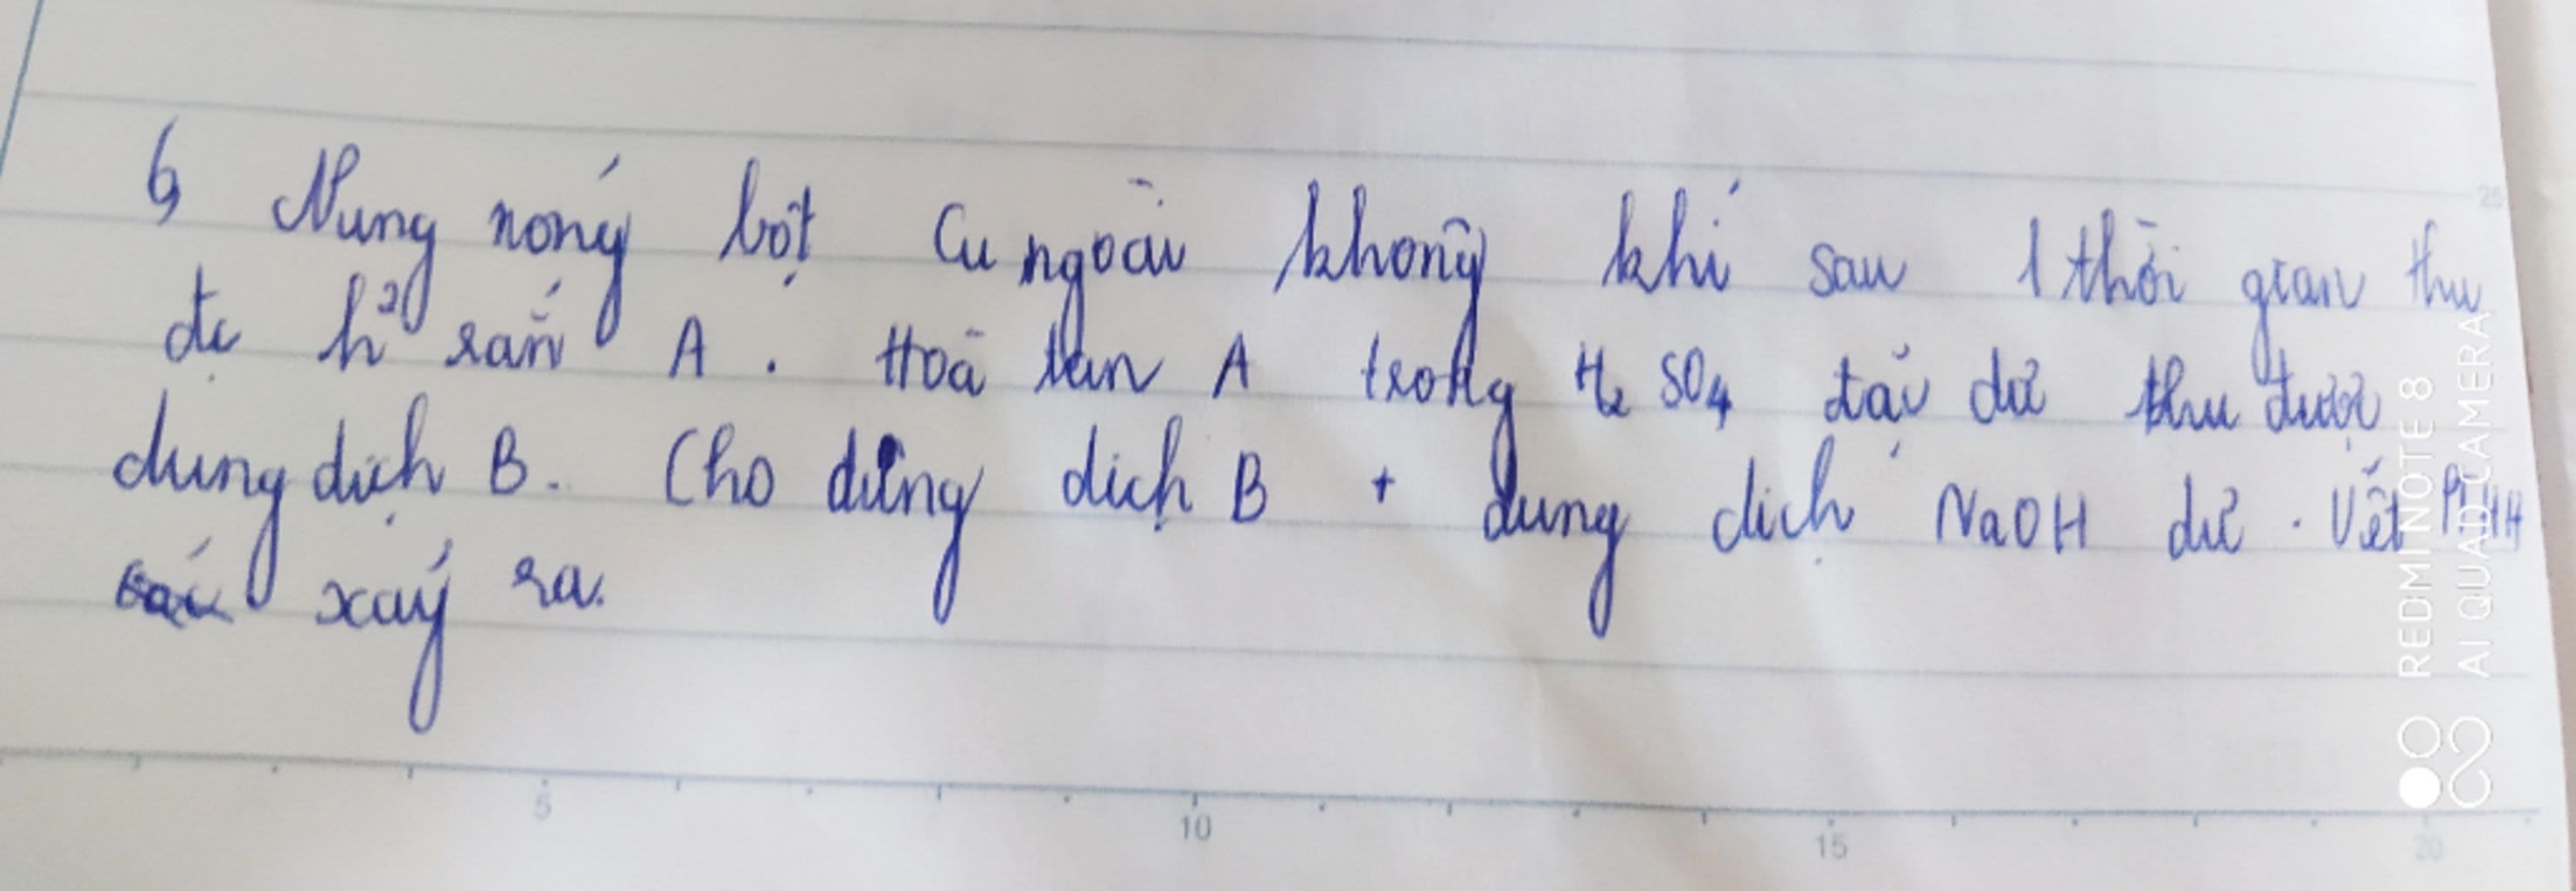 6 Nung nóng bột Cu ngoài không khí sau 1 thời gian thu
đc h² rắn A. Hoà tan A trong H₂SO₄ dư thu được
dung dịch B. Cho dung dịch B + dung dịch NaOH dư. Viết PTHH
xảy ra.
5 10 15 20
25
REDMI NOTE 8
AI QUAD CAMERA